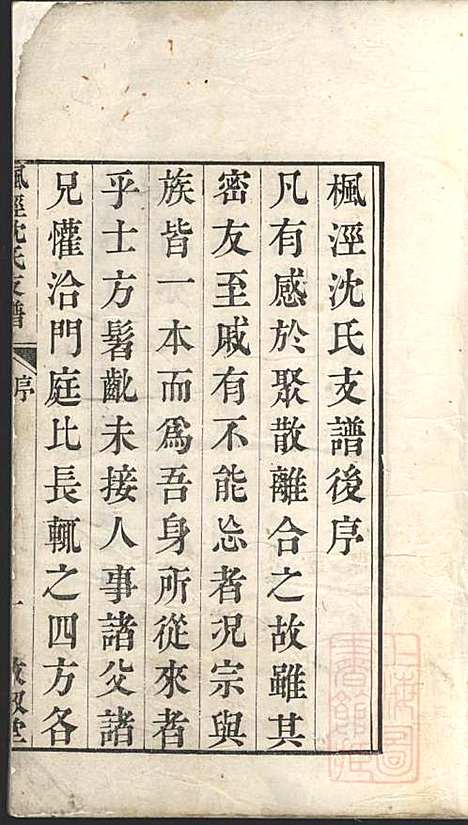 楓涇沈氏支譜後序
凡有感於聚散離合之故雖其
密友至戚有不能忘者況宗與
族皆一本而爲吾身所從來者
乎士方髫齔未接人事諸父諸
兄懽洽門庭比長輒之四方各
楓涇沈氏支譜
序
一
敦叙堂
上海圖書館藏